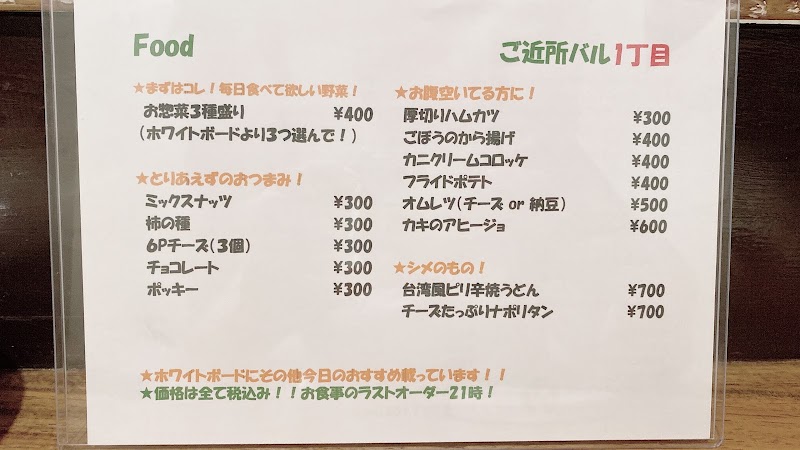 Food
ご近所バル1丁目
★まずはコレ！毎日食べて欲しい野菜！
お惣菜3種盛り ¥400
（ホワイトボードより3つ選んで！）
★とりあえずのおつまみ！
ミックスナッツ ¥300
柿の種 ¥300
6Pチーズ（3個） ¥300
チョコレート ¥300
ポッキー ¥300
★お腹空いてる方に！
厚切りハムカツ ¥300
ごぼうのから揚げ ¥400
カニクリームコロッケ ¥400
フライドポテト ¥400
オムレツ（チーズ or 納豆） ¥500
カキのアヒージョ ¥600
★シメのもの！
台湾風ピリ辛焼うどん ¥700
チーズたっぷりナポリタン ¥700
★ホワイトボードにその他今日のおすすめ載っています！！
★価格は全て税込み！！お食事のラストオーダー21時！